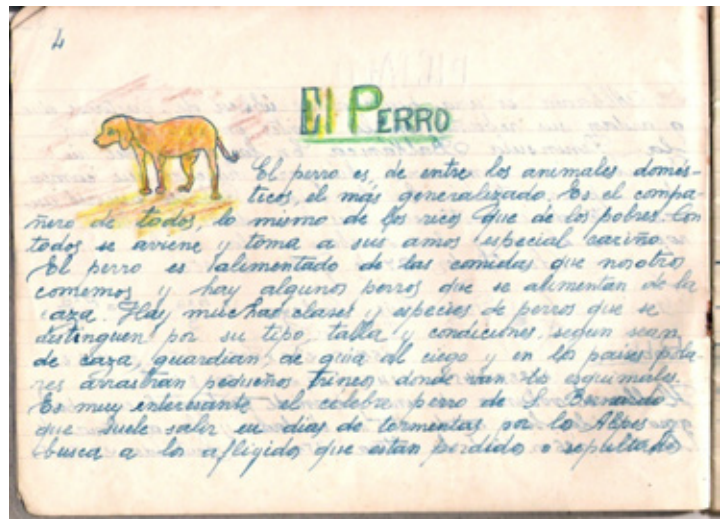 4
El PERRO
El perro es, de entre los animales domés-
ticos, el más generalizado. Es el compa-
ñero de todos, lo mismo de los ricos que de los pobres. Con
todos se aviene y toma a sus amos especial cariño.
El perro es alimentado de las comidas que nosotros
comemos y hay algunos perros que se alimentan de la
caza. Hay muchas clases y especies de perros que se
distinguen por su tipo, talla y condiciones, segun sean,
de caza, guardian, de guia al ciego y en los paises pola-
res arrastran pequeños trineos donde van los esquimales.
Es muy interesante el celebre perro de S. Bernardo
que suele salir en dias de tormentas por los Alpes
busca a los afligidos que estan perdidos o sepultados